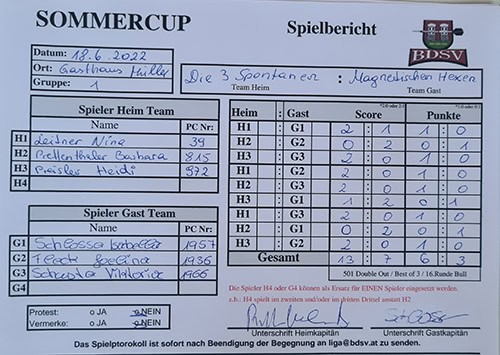 SOMMERCUP
Spielbericht
BDSV
Datum: 18.6.2022
Ort: Gasthaus Müller
Gruppe: 1
Die 3 Spontanen : Magnetischen Hexen
Team Heim Team Gast
Spieler Heim Team
Name PC Nr:
H1 Leitner Nina 39
H2 Prettenthaler Barbara 815
H3 Preisler Heidi 972
H4
Spieler Gast Team
Name PC Nr:
G1 Schlosser Isabella 1957
G2 Fleck 1936
G3 Schuster Viktoria 1966
G4
Protest: o JA o NEIN
Vermerke: o JA o NEIN
Heim : Gast Score Punkte
H1 : G1 2 : 1 1 : 0
H2 : G2 0 : 2 0 : 1
H3 : G3 2 : 0 1 : 0
H1 : G2 2 : 0 1 : 0
H2 : G3 2 : 0 1 : 0
H3 : G1 1 : 2 0 : 1
H1 : G3 2 : 0 1 : 0
H2 : G1 0 : 2 0 : 1
H3 : G2 2 : 0 1 : 0
Gesamt 13 : 7 6 : 3
501 Double Out / Best of 3 / 16.Runde Bull
Die Spieler H4 oder G4 können als Ersatz für EINEN Spieler eingesetzt werden.
z.b.: H4 spielt im zweiten und/oder im dritten Drittel anstatt H2
Unterschrift Heimkapitän Unterschrift Gastkapitän
Das Spielptorokoll ist sofort nach Beendigung der Begegnung an liga@bdsv.at zu senden.